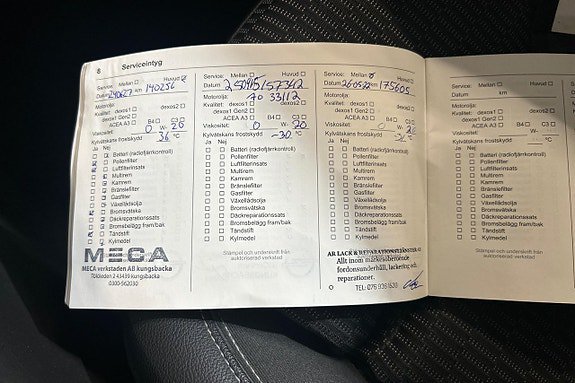 8 Serviceintyg
Service: Mellan Huvud
Datum km 140256
Motorolja:
Kvalitet: dexos1 dexos2
dexos1 Gen2
ACEA A3 B4 C3
Viskositet: 0 W- 20
Kylvätskans frostskydd 36 °C
Ja Nej
Batteri (radiofjärrkontroll)
Pollenfilter
Luftfilterinsats
Multirem
Kamrem
Bränslefilter
Gasfilter
Växellådsolja
Bromsvätska
Däckreparationssats
Bromsbelägg fram/bak
Tändstift
Kylmedel
MECA
MECA verkstaden AB kungsbacka
Tölöleden 2 43439 kungsbacka
0300-562030
Service: Mellan Huvud
Datum
Motorolja:
Kvalitet: dexos1 dexos2
dexos1 Gen2
ACEA A3 B4 C3
Viskositet: 0 W- 20
Kylvätskans frostskydd -30 °C
Ja Nej
Batteri (radiofjärrkontroll)
Pollenfilter
Luftfilterinsats
Multirem
Kamrem
Bränslefilter
Gasfilter
Växellådsolja
Bromsvätska
Däckreparationssats
Bromsbelägg fram/bak
Tändstift
Kylmedel
Stämpel och underskrift från
auktoriserad verkstad
Service: Mellan Huvud
Datum km 175605
Motorolja:
Kvalitet: dexos1 dexos2
dexos1 Gen2
ACEA A3 B4 C3
Viskositet: 0 W-
Kylvätskans frostskydd °C
Ja Nej
Batteri (radiofjärrkontroll)
Pollenfilter
Luftfilterinsats
Multirem
Kamrem
Bränslefilter
Gasfilter
Växellådsolja
Bromsvätska
Däckreparationssats
Bromsbelägg fram/bak
Tändstift
Kylmedel
AB LACK & REPARATIONSTJÄNSTER
Allt inom märkesoberoende
fordonsunderhåll, lackering och
reparationer.
Service: Mellan
Datum km
Motorolja:
Kvalitet: dexos1
dexos1 Gen2
ACEA A3 B4
Viskositet: W-
Kylvätskans frostskydd °C
Ja Nej
Batteri (radiofjärrkontroll)
Pollenfilter
Luftfilterinsats
Multirem
Kamrem
Bränslefilter
Gasfilter
Växellådsolja
Bromsvätska
Däckreparationssats
Bromsbelägg fram/bak
Tändstift
Kylmedel
Stämpel och underskrift från
auktoriserad verkstad